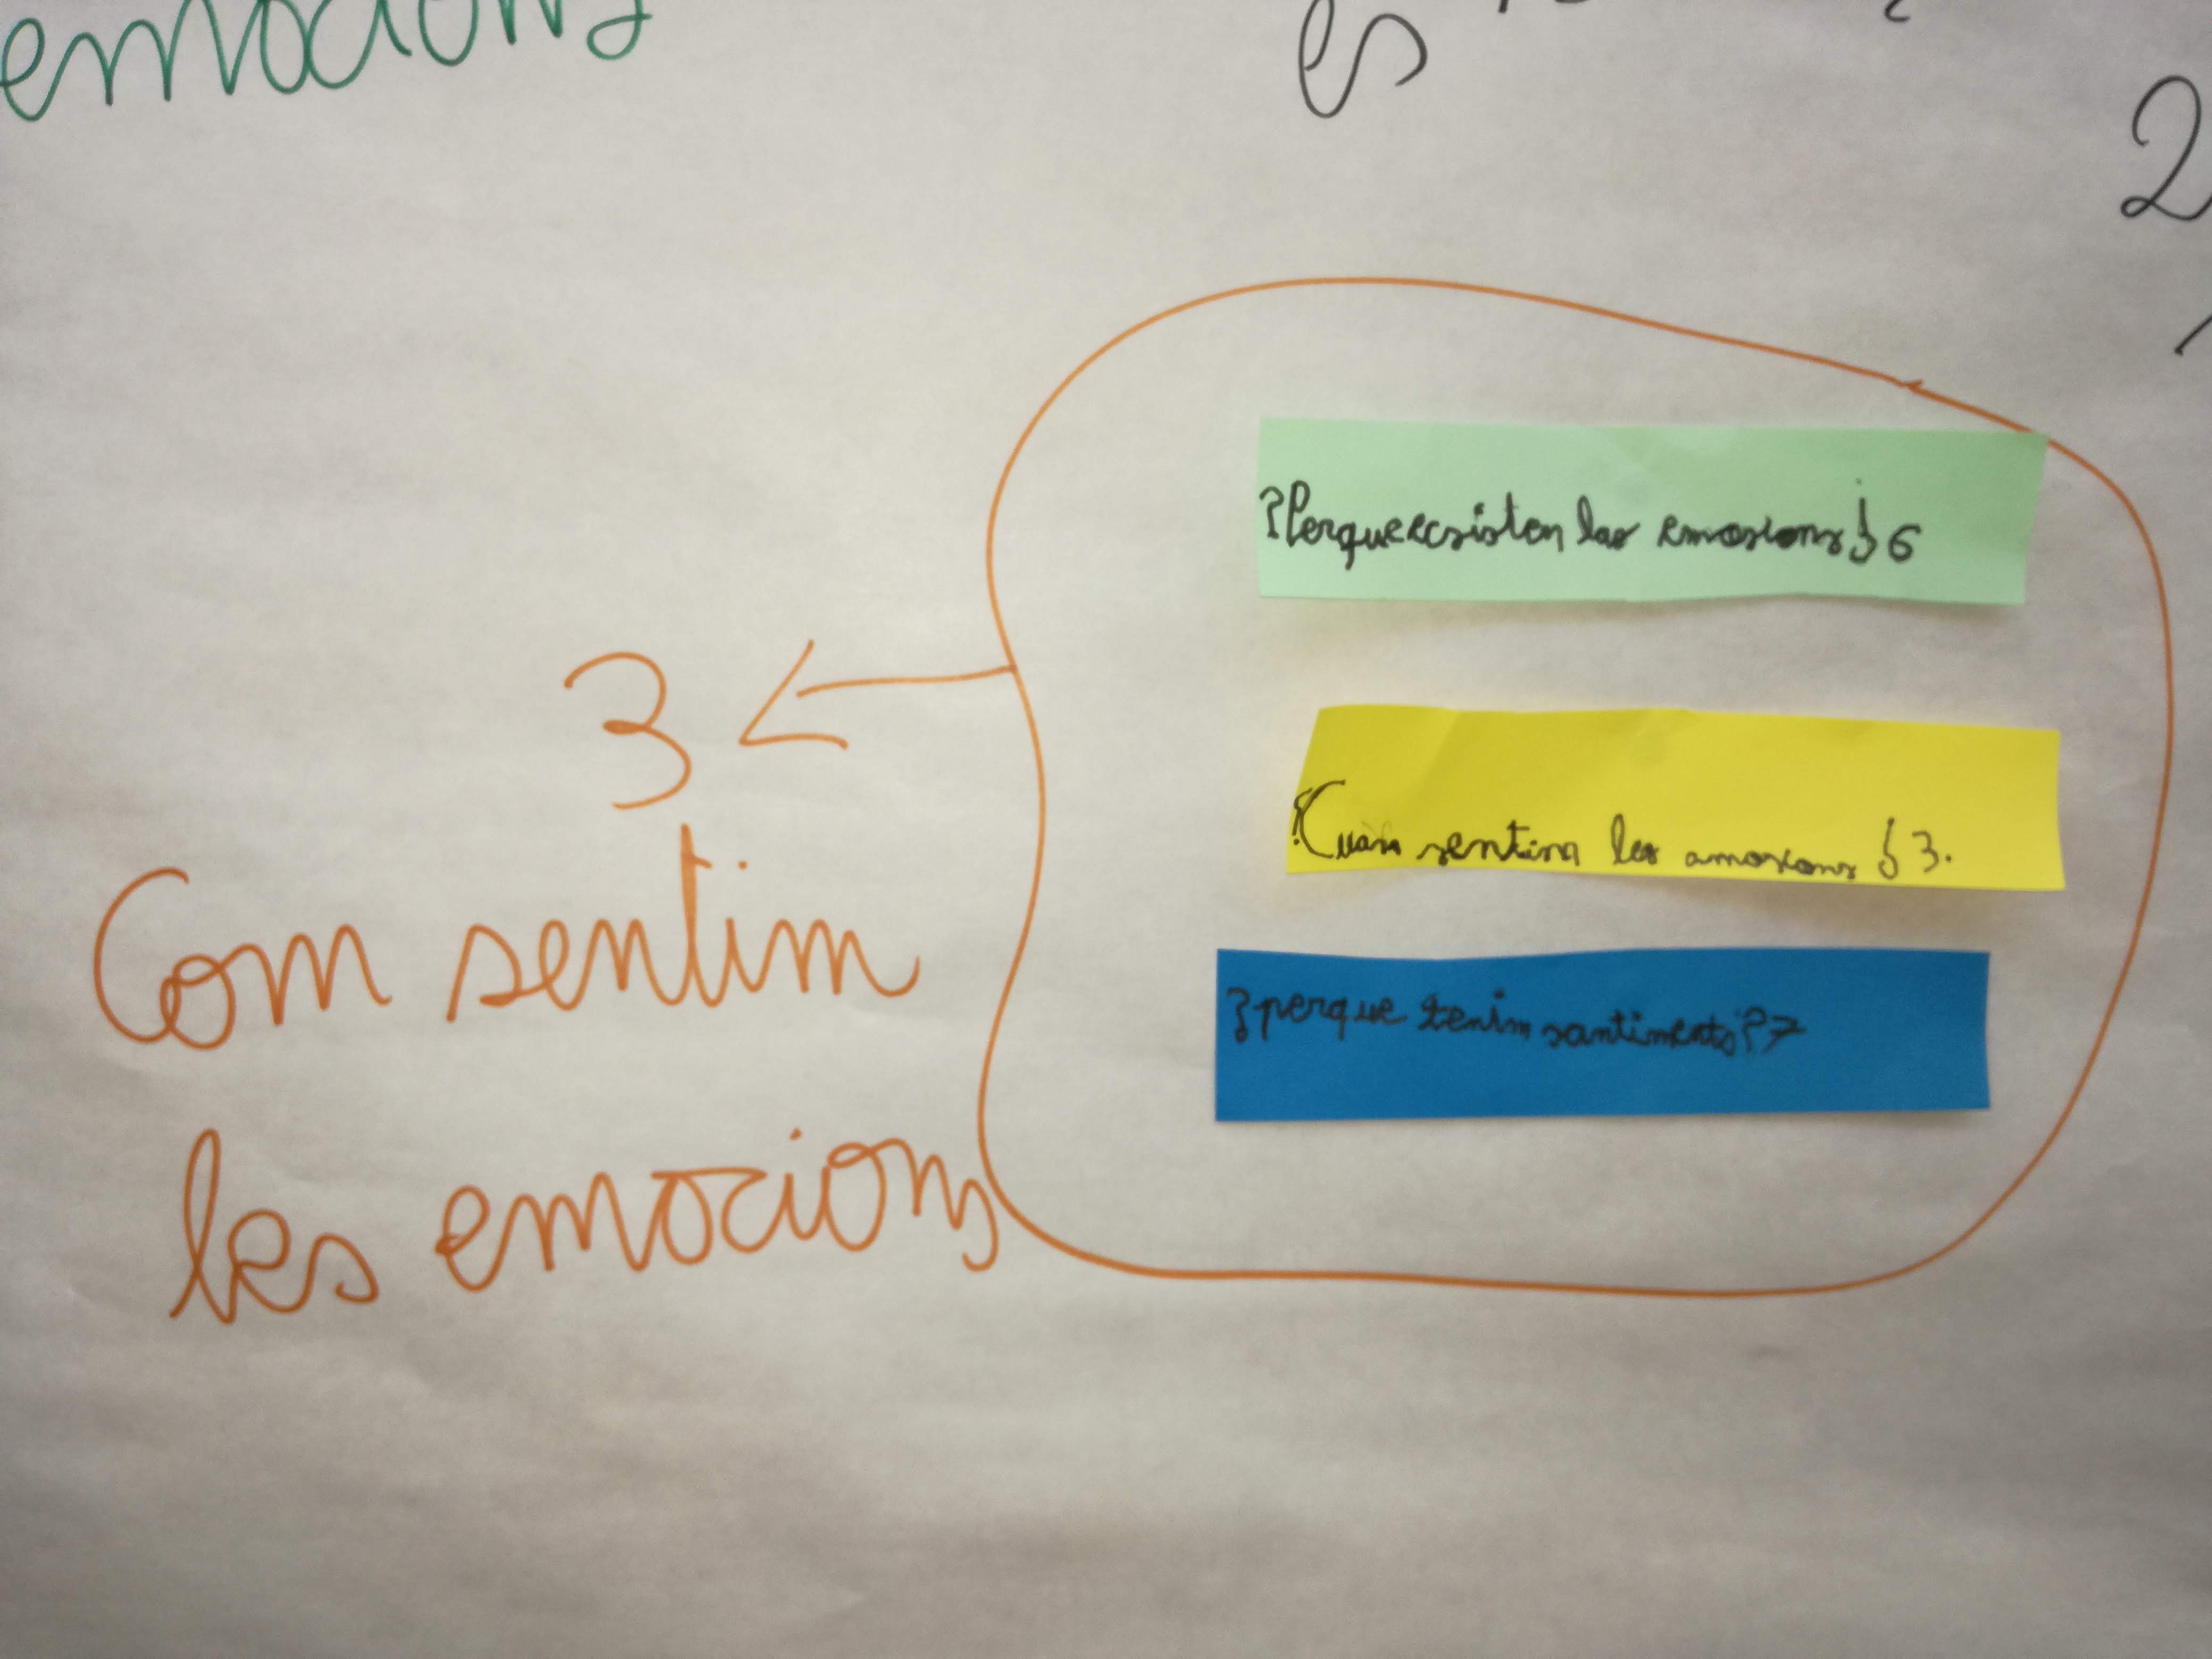 emocions
es
2
?Perque ecsisten las emosions? 6
3
?Cuan sentim les amosions? 3.
Com sentim
?perque tenim santiments? 7
les emocions